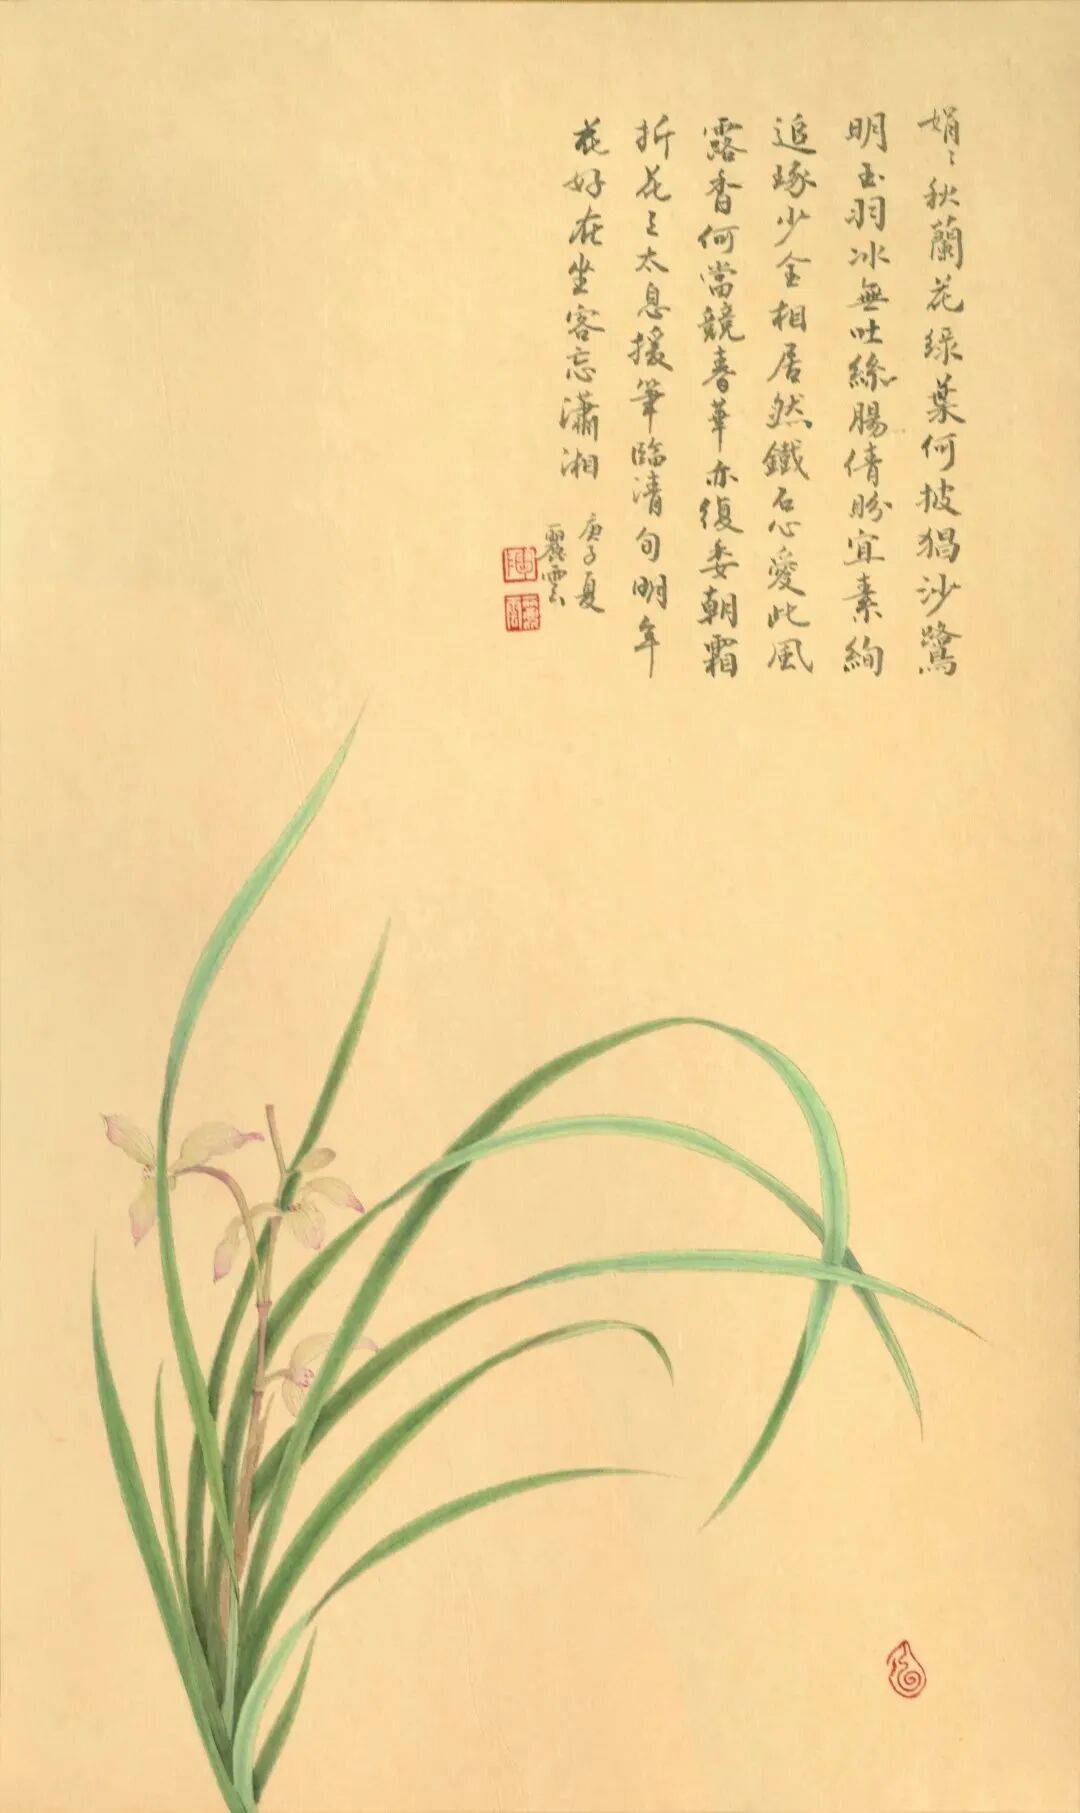 娟〻秋蘭花緑葉何披猖沙鷺
明玉羽冰無吐絲腸倩盼宜素絢
追琢少金相居然鐵石心愛此風
露香何當競春華亦復委朝霜
折花三太息援筆臨清句明年
花好在坐客忘瀟湘
庚子夏
麗雲